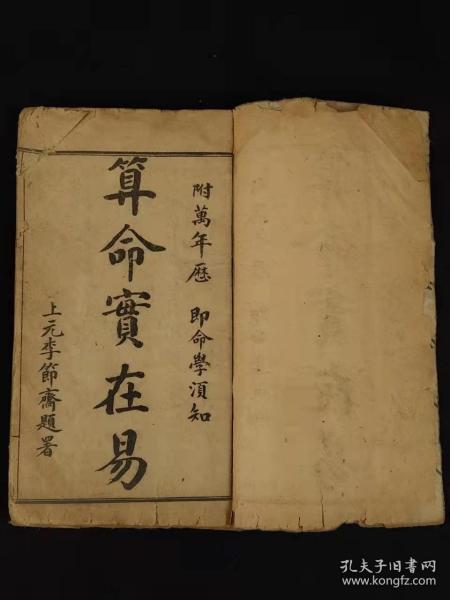 附萬年曆 即命學須知
算命實在易
上元李節齋題署
孔夫子旧书网
www.kongfz.com